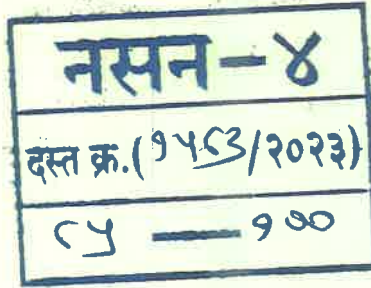 नसन-४
दस्त क्र.(१५८३/२०२३)
८५ — १७०